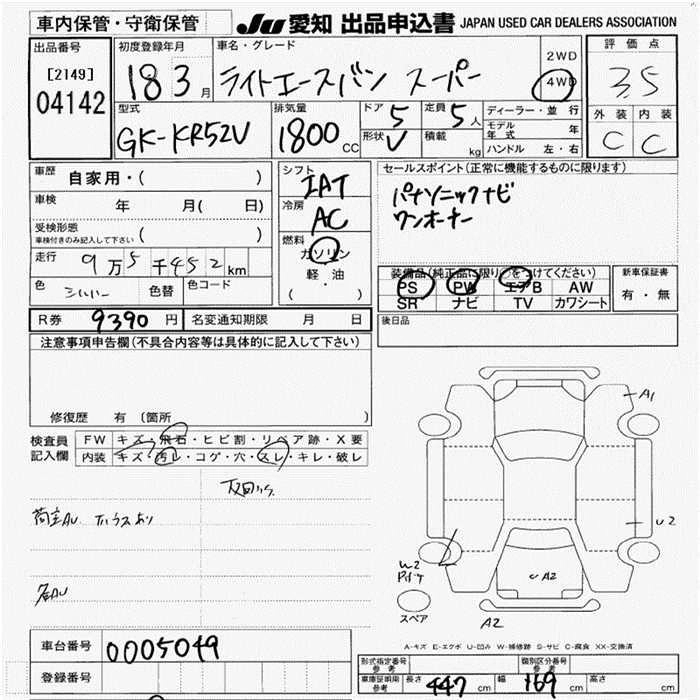 車内保管・守衛保管 JU 愛知 出品申込書 JAPAN USED CAR DEALERS ASSOCIATION
出品番号 初度登録年月 車名・グレード 評価点
[2149] 18 3月 ライトエースバン スーパー 2WD 3.5
04142 4WD
外装 内装
型式 排気量 ドア 5 定員 5人 ディーラー・並行 C C
GK-KR52V 1800 CC 形状 V 積載 kg モデル年式 年
ハンドル 左・右
車歴 自家用・( ) シフト IAT セールスポイント(正常に機能するものに限ります)
車検 年 月( 日) 冷房 AC パナソニックナビ
受検形態 ワンオーナー
車検付きのみ記入して下さい ( ) 燃料
走行 9万5千452km ガソリン
軽・油
( ・ )
色 シルバー 色替 色コード
装備品(純正品に限り○をつけてください) 新車保証書
PS PW エアB AW 有・無
SR ナビ TV カワシート
R券 9390円 名変通知期限 月 日 後日品
注意事項申告欄(不具合内容等は具体的に記入して下さい)
修復歴 有 (箇所 )
検査員記入欄 FW キズ・飛石・ヒビ割・リペア跡・X要
内装 キズ・汚レ・コゲ・穴・スレ・キレ・破レ
A1
U2
A2
スペア
A2
A-キズ E-エクボ U-凹み W-補修跡 S-サビ C-腐食 XX-交換済
車台番号 0005049
登録番号
形式指定番号 参考 類別区分番号 参考
車庫証明用 参考 長さ 447cm 幅 169cm 高さ cm